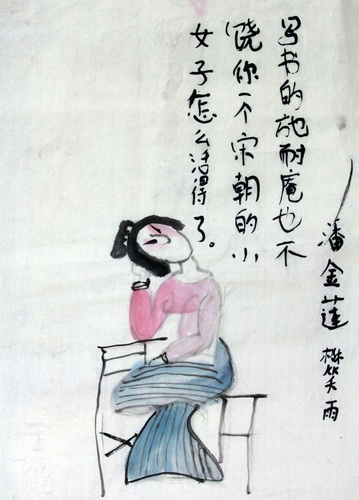 潘金莲 樊笑雨
写书的施耐庵也不
饶你个宋朝的小
女子怎么活得了。